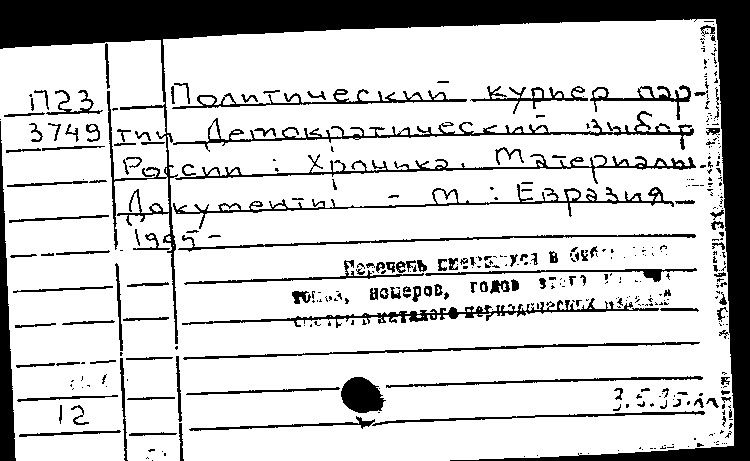 П23 Политический курьер пар-
3749 тии Демократический выбор
России : Хроника. Материалы.
Документы. - М. : Евразия,
1995-
Перечень имеющихся в
томов, номеров, годов этого
смотри в каталоге периодических изданий
12 3.5.95.